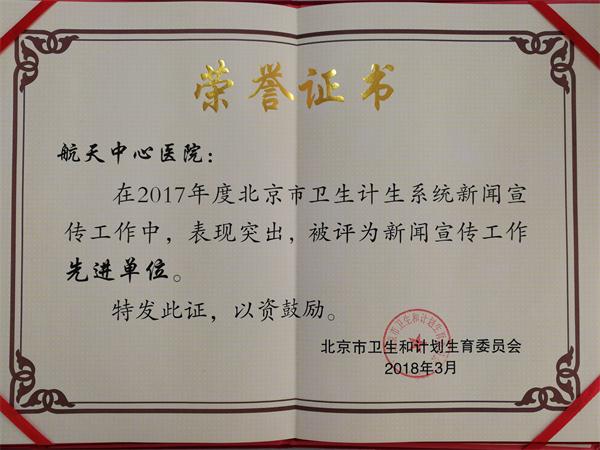 荣誉证书
航天中心医院：
在2017年度北京市卫生计生系统新闻宣
传工作中，表现突出，被评为新闻宣传工作
先进单位。
特发此证，以资鼓励。
北京市卫生和计划生育委员会
2018年3月
北京市卫生和计划生育委员会